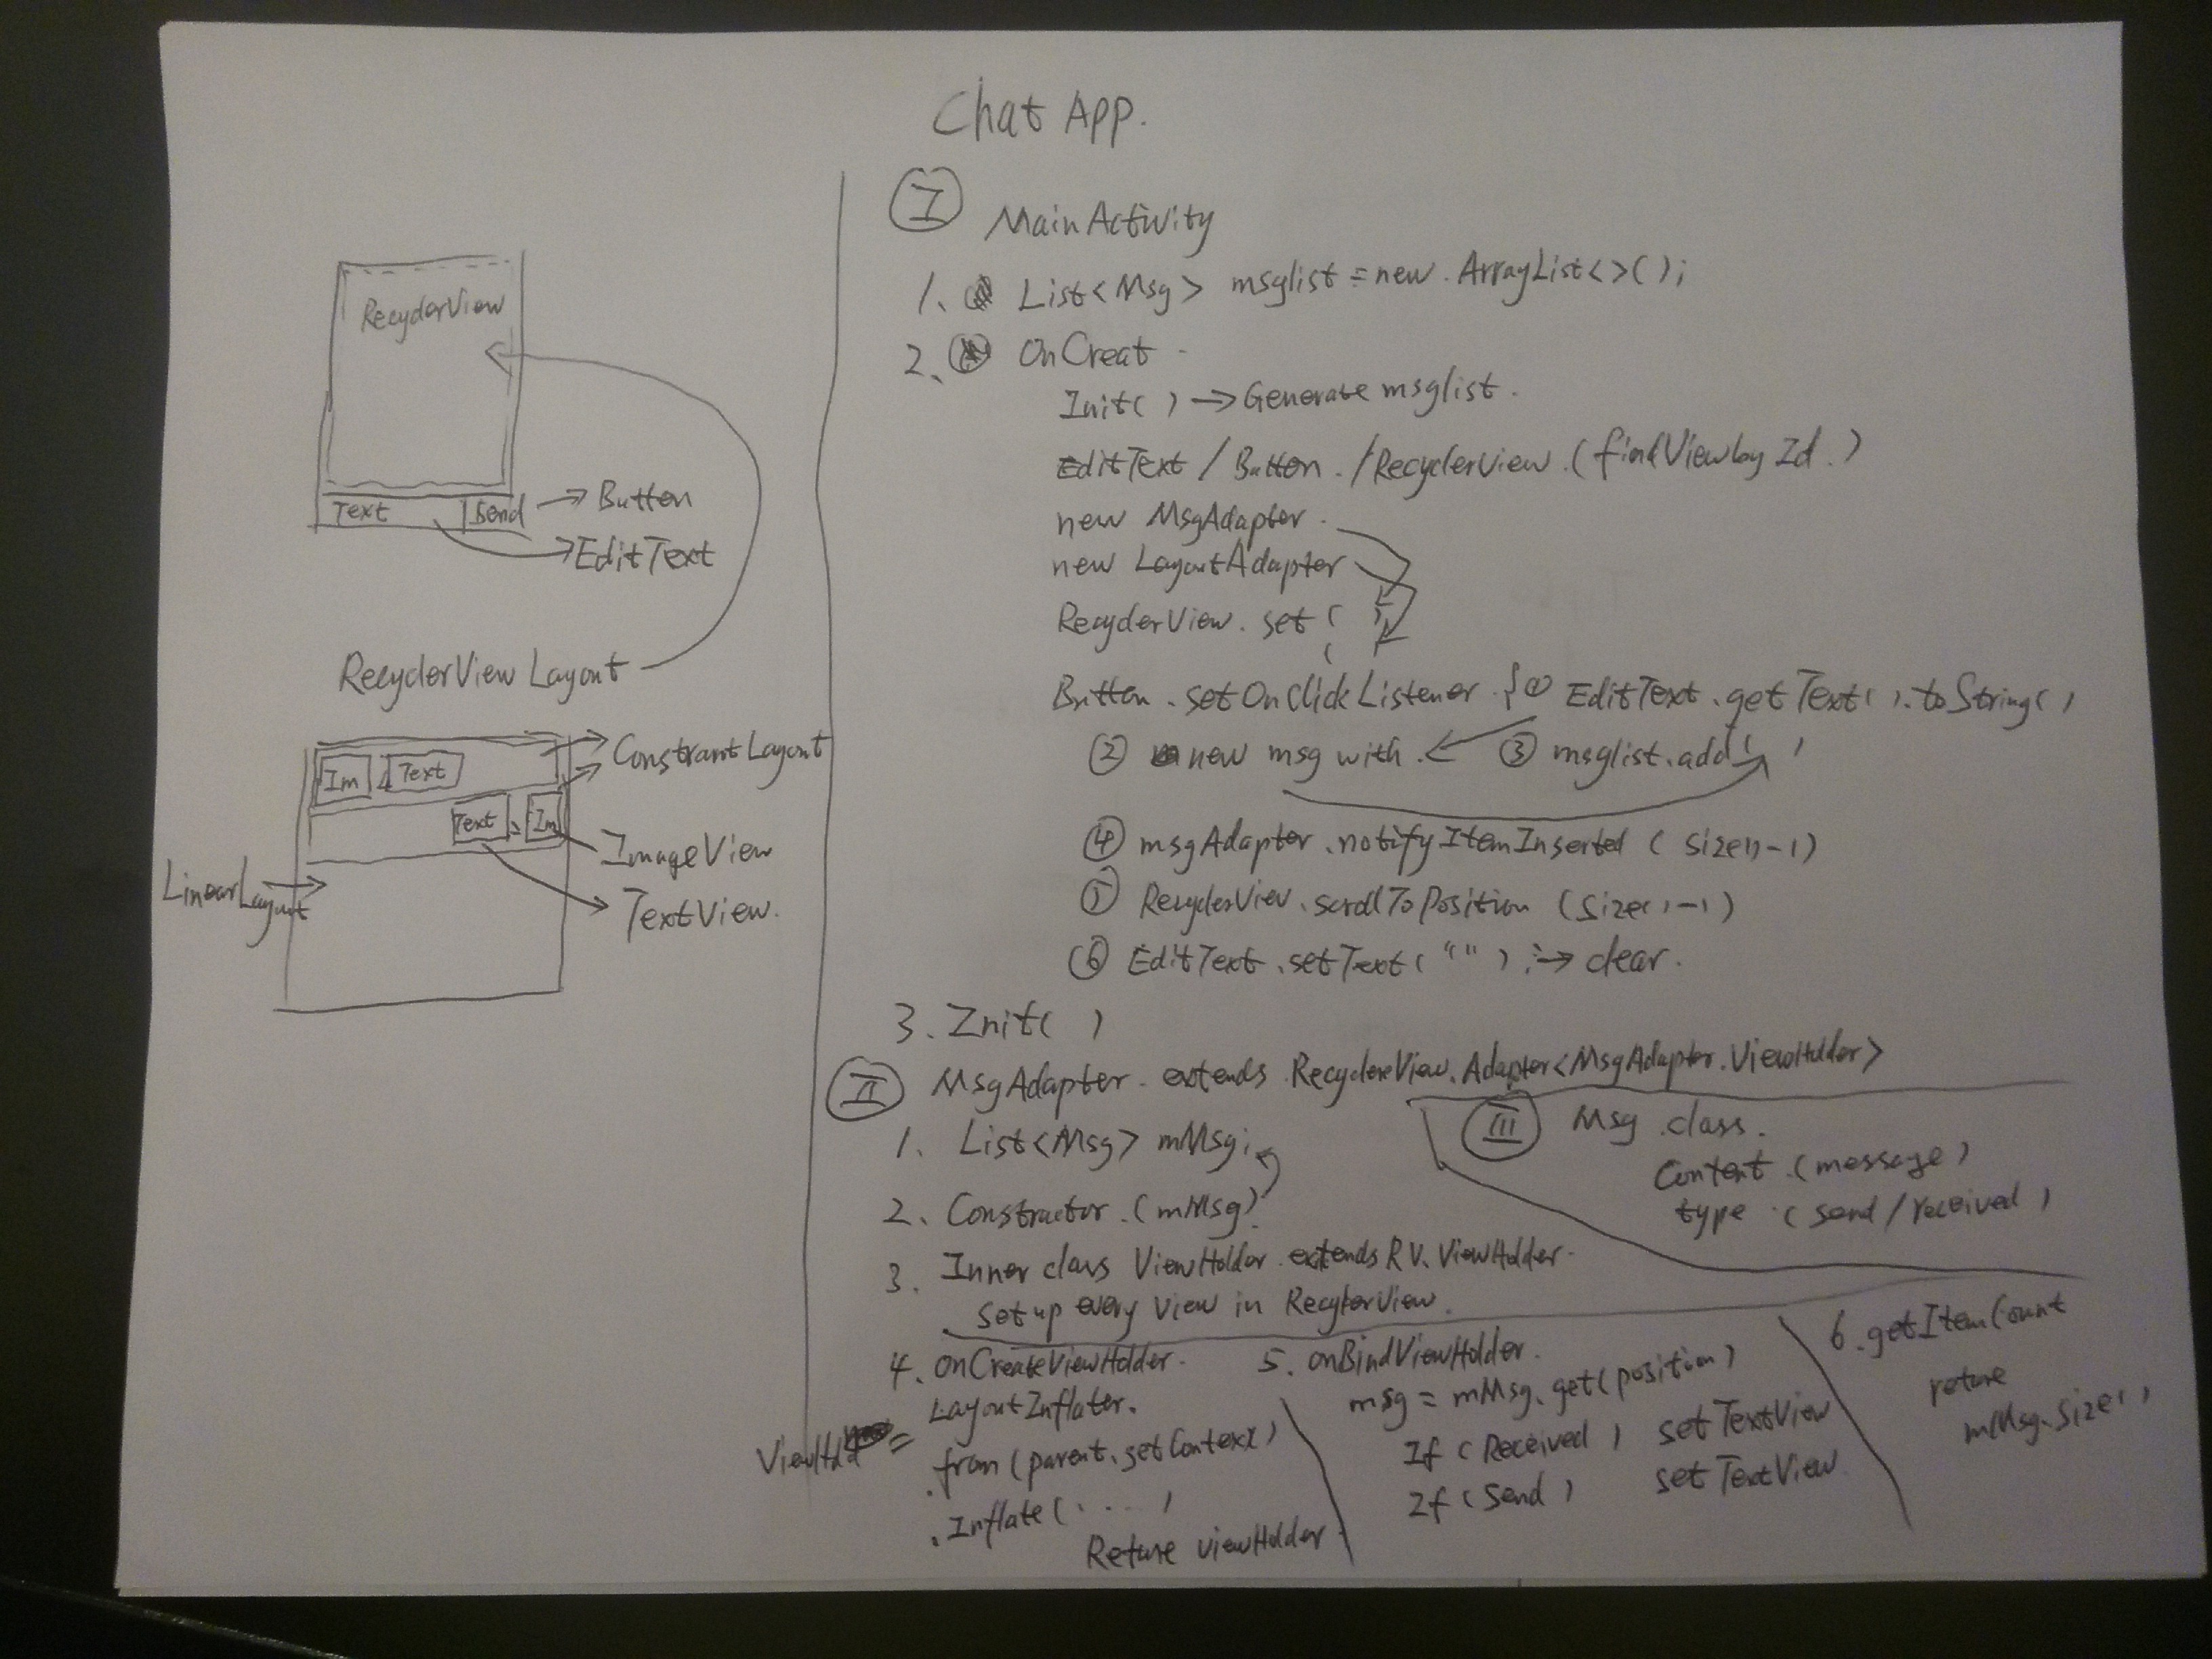 Chat App.
RecyclerView
Text
Send
Button
EditText
RecyclerView Layout
Im
Text
ConstrantLayout
Text
Im
ImageView
LinearLayout
TextView.
I MainActivity
1. List<Msg> msglist = new. ArrayList<>();
2. OnCreat
Init( ) → Generate msglist.
EditText / Button. / RecyclerView. (findViewby Id.)
new MsgAdapter.
new LayoutAdapter
RecyclerView. set ( )
(
Button. setOnClickListener. { ① EditText.getText( ).toString( )
② new msg with. ③ msglist.add( )
④ msgAdapter.notifyItemInserted ( size()-1)
⑤ RecyclerView.scrollToPosition (size()-1)
⑥ EditText.setText( "" ); → clear.
3. Init( )
II MsgAdapter. extends RecyclereView.Adapter<MsgAdapter.ViewHolder>
1. List<Msg> mMsg;
2. Constructor.(mMsg)
3. Inner class ViewHolder extends RV.ViewHolder.
set up every view in RecyclerView.
III Msg class.
Content.(message)
type (send/received)
4. onCreateViewHolder.
LayoutInflater.
ViewHld =
.from(parent.getContext)
.Inflate(....)
Reture viewHolder.
5. onBindViewHolder.
msg = mMsg.get(position)
If (Received) setTextView
If (Send) setTextView
6. getItemCount
reture
mMsg.size()